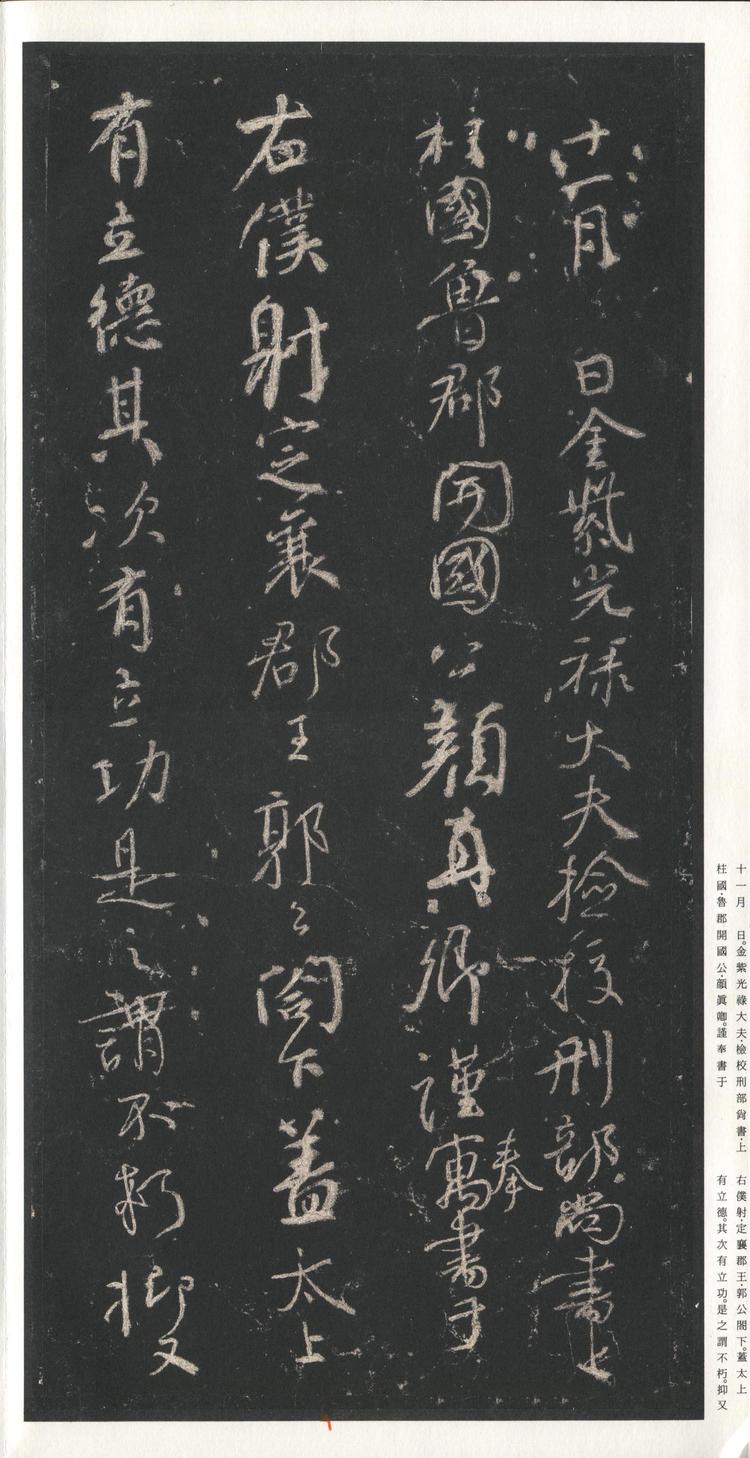 十一月 日金紫光祿大夫檢校刑部尚書上
柱國魯郡開國公顏真卿謹寓奉書于
右僕射定襄郡王郭公閤下蓋太上
有立德其次有立功是之謂不朽抑又
十一月 日。金紫光祿大夫·檢校刑部尙書·上
柱國·魯郡開國公·顏眞卿。謹奉書于
右僕射·定襄郡王·郭公閤下。蓋太上
有立德。其次有立功。是之謂不朽。抑又